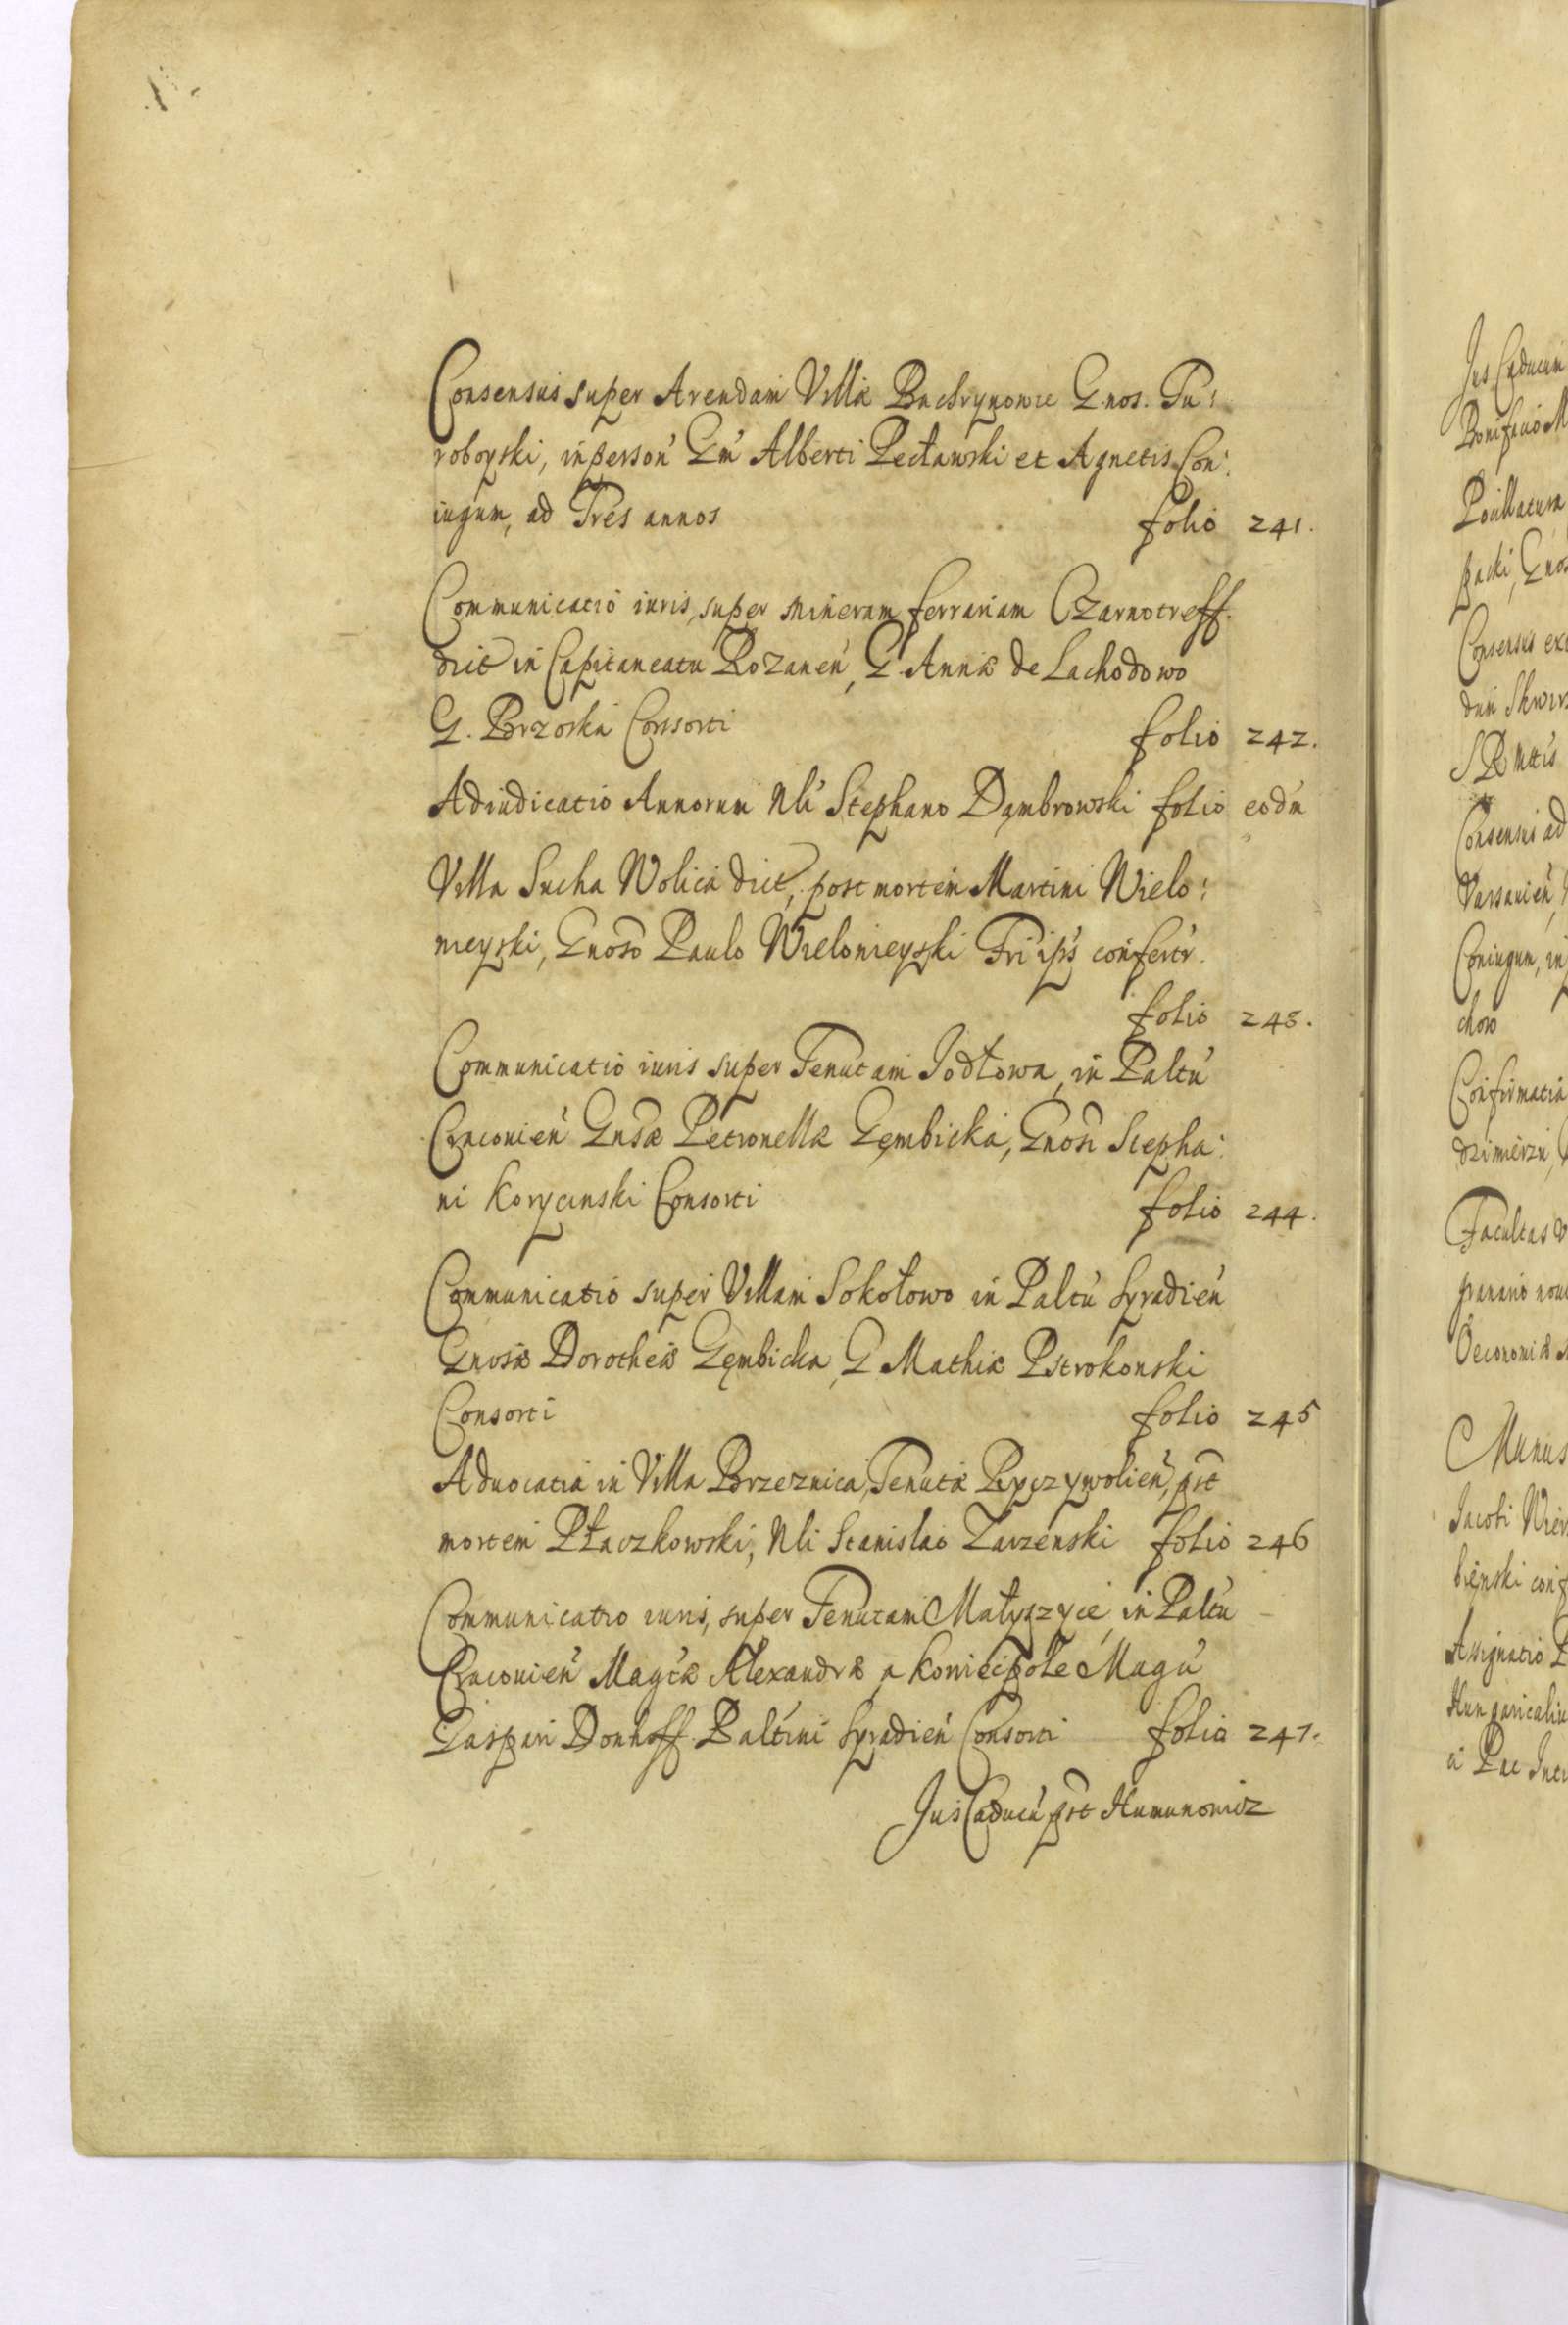 Consensus super Arendam Villæ Buchrynowce G.nos. Tu:
roboyski, in person̄ Gm̄ Alberti Pecławski et Agnetis Con:
iugum, ad Tres annos folio 241.
Communicatio iuris, super mineram ferrariam Czarnotreff.
dict in Capitaneatu Rozaneń, G. Annæ de Lachodowo
G. Brzoska Consorti folio 242.
Adiudicatio Annorum Nli Stephano Dąmbrowski folio eodm̄
Villa Sucha Wolica dict, post mortem Martini Wielo:
nieyski, Gnoso Paulo Wielonieyski Fri ips confertr.
folio 243.
Communicatio iuris super Tenutam Jodłowa, in Paltū
Cracovień Gnsæ Petronellæ Gęmbicka, Gnosi Stepha:
ni Korycinski Consorti folio 244.
Communicatio super Villam Sokołowo in Paltū Syradień
Gnosæ Dorotheæ Gęmbicka, G Mathiæ Pstrokonski
Consorti folio 245
Aduocatia in Villa Brzeznica, Tenutæ Ryczywolień, pst
mortem Płaczkowski, Nli Stanislao Zarzenski folio 246
Communicatio iuris, super Tenutam Małyszyce, in Paltū
Cracovień Magcæ Alexandræ a Koniecpole Magci
Caspari Donhoff Paltini Syradień Consorti folio 247.
Jus Caducū pst Humunowicz
Jus Caducum
Bonifacio M
Consensus
Consensus ad
Coniugum, in
Confirmatia
Facultas
Oeconomiæ
Munus
Jacobi
Assignatio